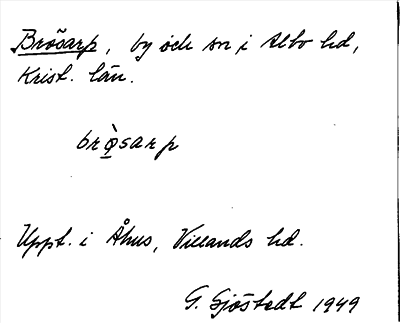 Brösarp, by och sn i Albo hd,
Krist. län.
brø̀sarp
Uppt. i Åhus, Villands hd.
G. Sjöstedt 1949